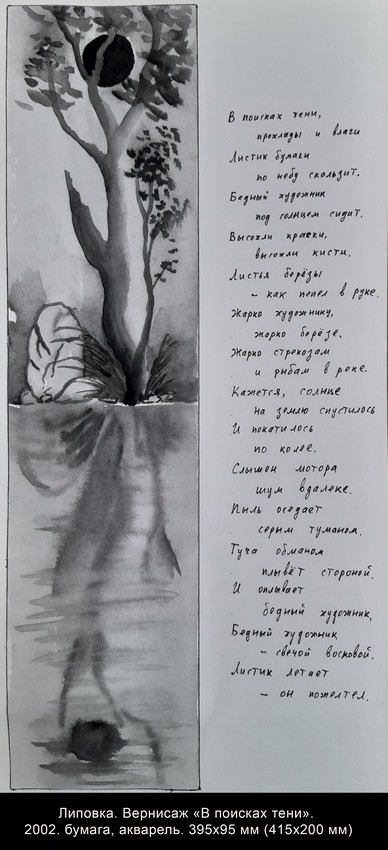 В поисках тени,
прохлады и влаги
Листик бумаги
по небу скользит.
Бедный художник
под солнцем сидит.
Высохли краски,
высохли кисти.
Листья берёзы
– как пепел в руке.
Жарко художнику,
жарко берёзе,
Жарко стрекозам
и рыбам в реке.
Кажется, солнце
на землю спустилось
И покатилось
по колее.
Слышен мотора
шум вдалеке.
Пыль оседает
серым туманом.
Туча обманом
плывёт стороной.
И оплывает
бедный художник,
Бедный художник
– свечой восковой.
Листик летает
– он пожелтел.
Липовка. Вернисаж «В поисках тени».
2002. бумага, акварель. 395х95 мм (415х200 мм)